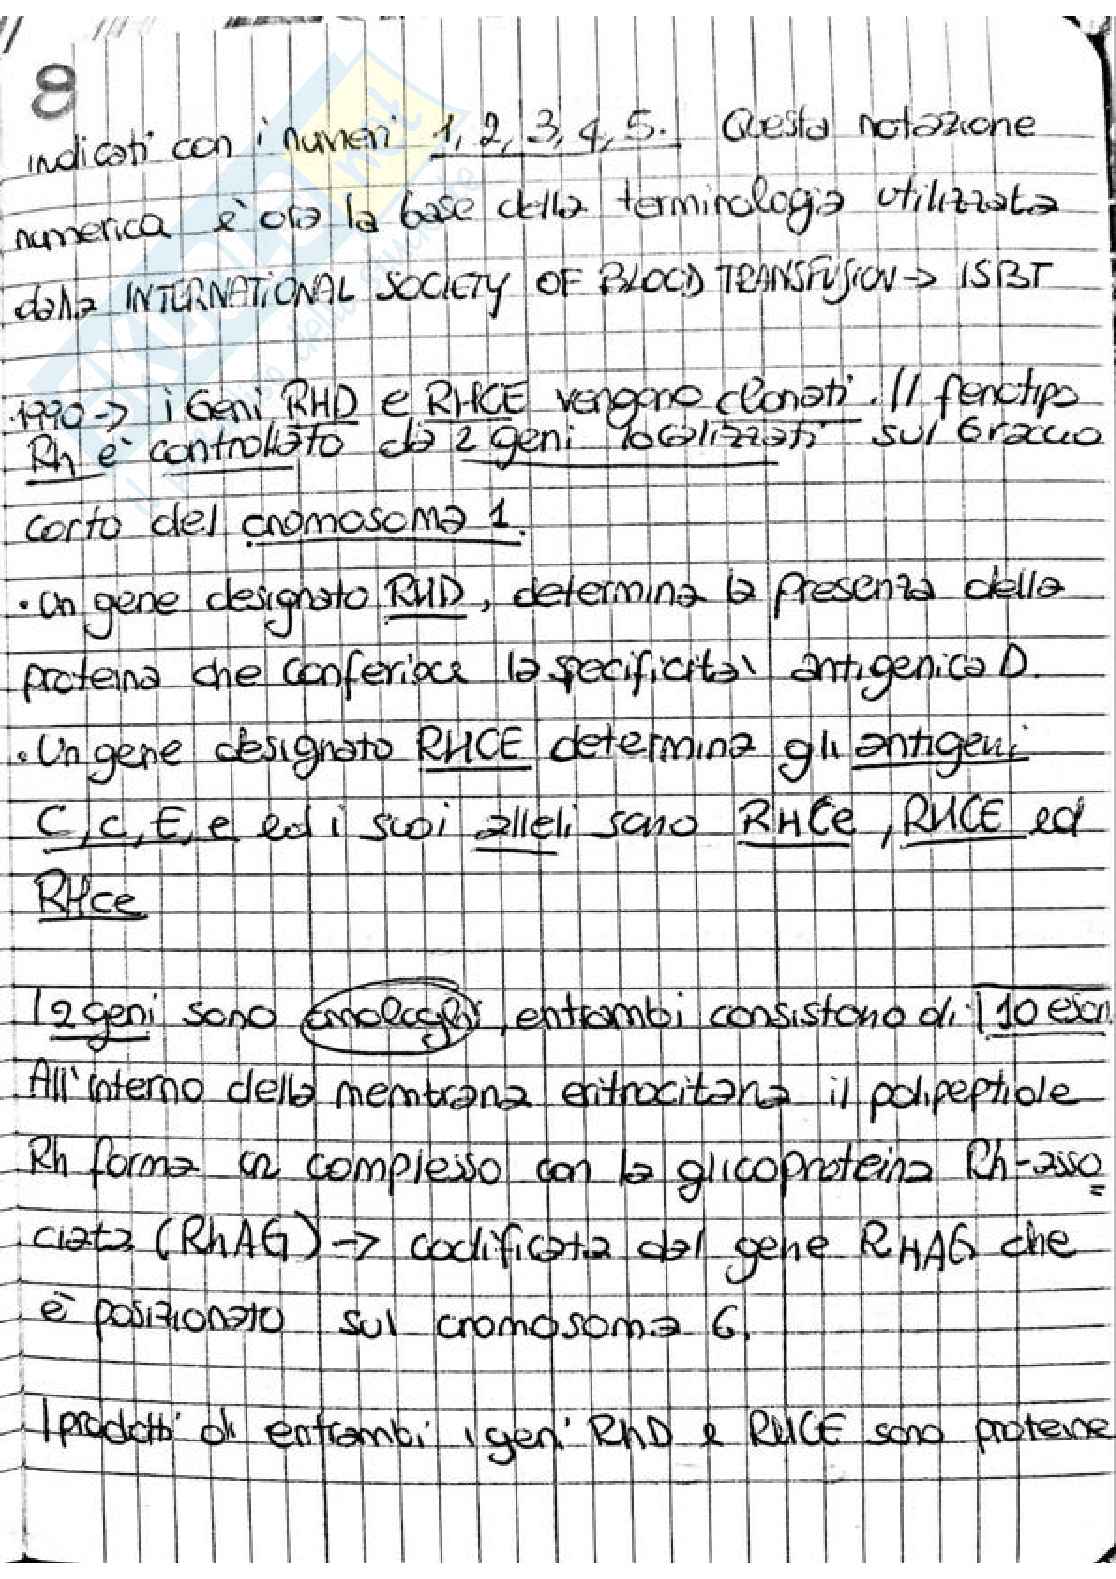 8
indicati con i numeri 1, 2, 3, 4, 5. Questa notazione
numerica è ora la base della terminologia utilizzata
dalla INTERNATIONAL SOCIETY OF BLOOD TRANSFUSION → ISBT
·1990 → i Geni RHD e RHCE vengono clonati. Il fenotipo
Rh è controllato da 2 geni localizzati sul braccio
corto del cromosoma 1.
· Un gene designato RHD, determina la presenza della
proteina che conferisce la specificità antigenica D.
· Un gene designato RHCE determina gli antigeni
C, c, E, e ed i suoi alleli sono RHCe, RHCE ed
RHce
I 2 geni sono omologhi, entrambi consistono di 10 esoni
All'interno della membrana eritrocitaria il polipeptide
Rh forma un complesso con la glicoproteina Rh-asso
ciata (RhAG) → codificata dal gene RHAG che
è posizionato sul cromosoma 6.
I prodotti di entrambi i geni RhD e RHCE sono proteine